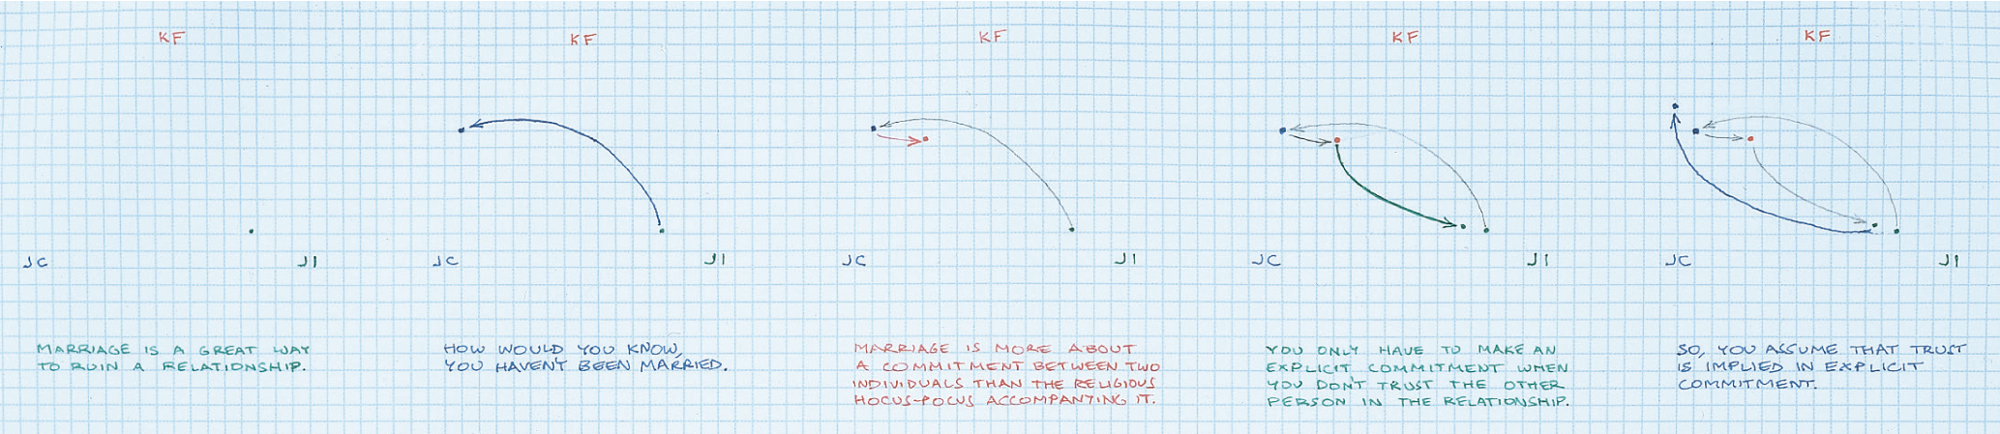 KF
JC
JI
MARRIAGE IS A GREAT WAY
TO RUIN A RELATIONSHIP.
KF
JC
JI
HOW WOULD YOU KNOW,
YOU HAVEN'T BEEN MARRIED.
KF
JC
JI
MARRIAGE IS MORE ABOUT
A COMMITMENT BETWEEN TWO
INDIVIDUALS THAN THE RELIGIOUS
HOCUS-POCUS ACCOMPANYING IT.
KF
JC
JI
YOU ONLY HAVE TO MAKE AN
EXPLICIT COMMITMENT WHEN
YOU DON'T TRUST THE OTHER
PERSON IN THE RELATIONSHIP.
KF
JC
JI
SO, YOU ASSUME THAT TRUST
IS IMPLIED IN EXPLICIT
COMMITMENT.